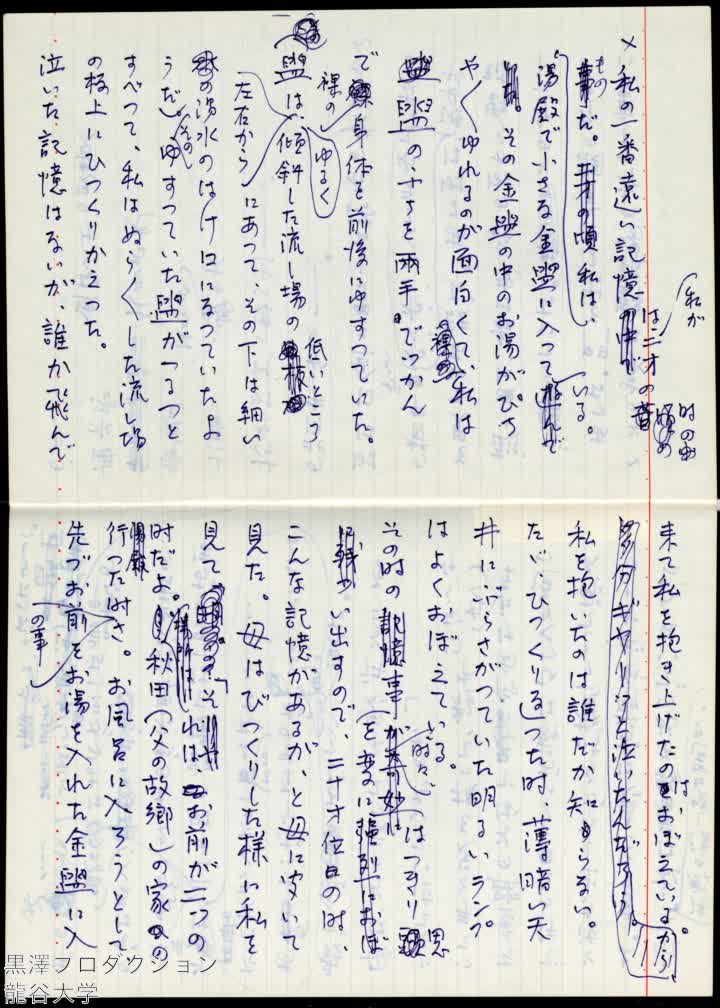 ×私の一番遠い記憶は二才の時の
ものだ。私は、
湯殿で小さな金盥に入って いる。
その金盥の中のお湯がぴち
ゃ〱ゆれるのが面白くて、私は
盥のふちを両手でつかん
で裸の身体を前後にゆすっていた。
盥は、傾斜した流し場の低いところ
左右からゆるく にあって、その下は細い
湯水のはけ口になっていたよ
うだ。そのゆすっていた盥がつるっと
すべって、私はぬら〱した流し場
の板上にひっくりかえった。
泣いた記憶はないが、誰かで飛んで
来て私を抱き上げたのはおぼえている。
多分ギャーッと泣いたんだらう。
私を抱いたのは誰だか知らない。
たゞ、ひっくり返った時、薄暗い天
井にぶらさがっていた明るいランプ
はよくおぼえている。
その時の事が時々、はっきり思
い出すので、二十才位の時、
こんな記憶があるが、と母に訊いて
見た。母はびっくりした様に私を
見て「それは、お前が二つの
時だよ。秋田(父の故郷)の家の
行った時さ。お風呂に入ろうとして
先づお前をお湯を入れた金盥に入
の事